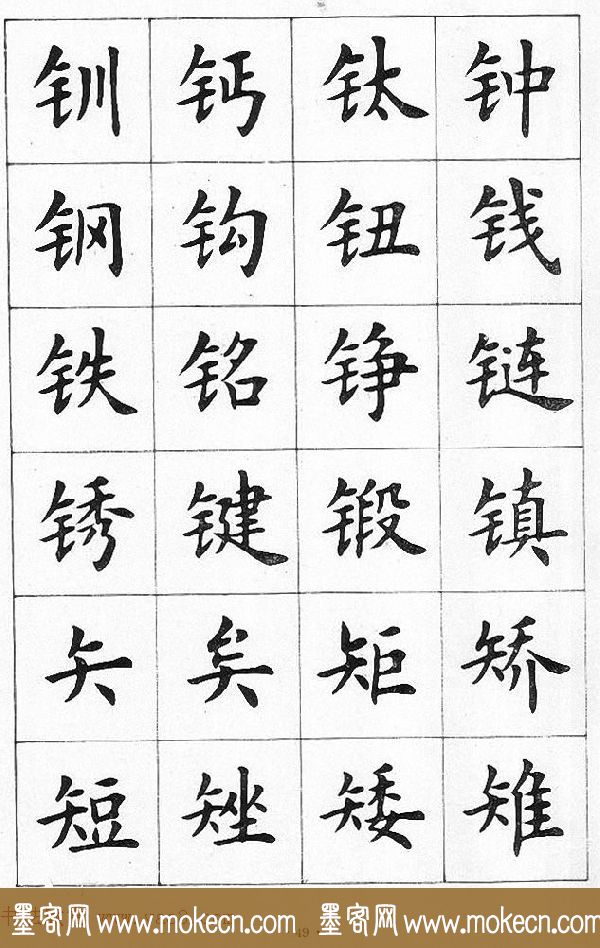 钏 钙 钛 钟
钢 钩 钮 钱
铁 铭 铮 链
锈 键 锻 镇
矢 矣 矩 矫
短 矬 矮 雉
49
墨客网 www.mokecn.com 墨客网 www.mokecn.com